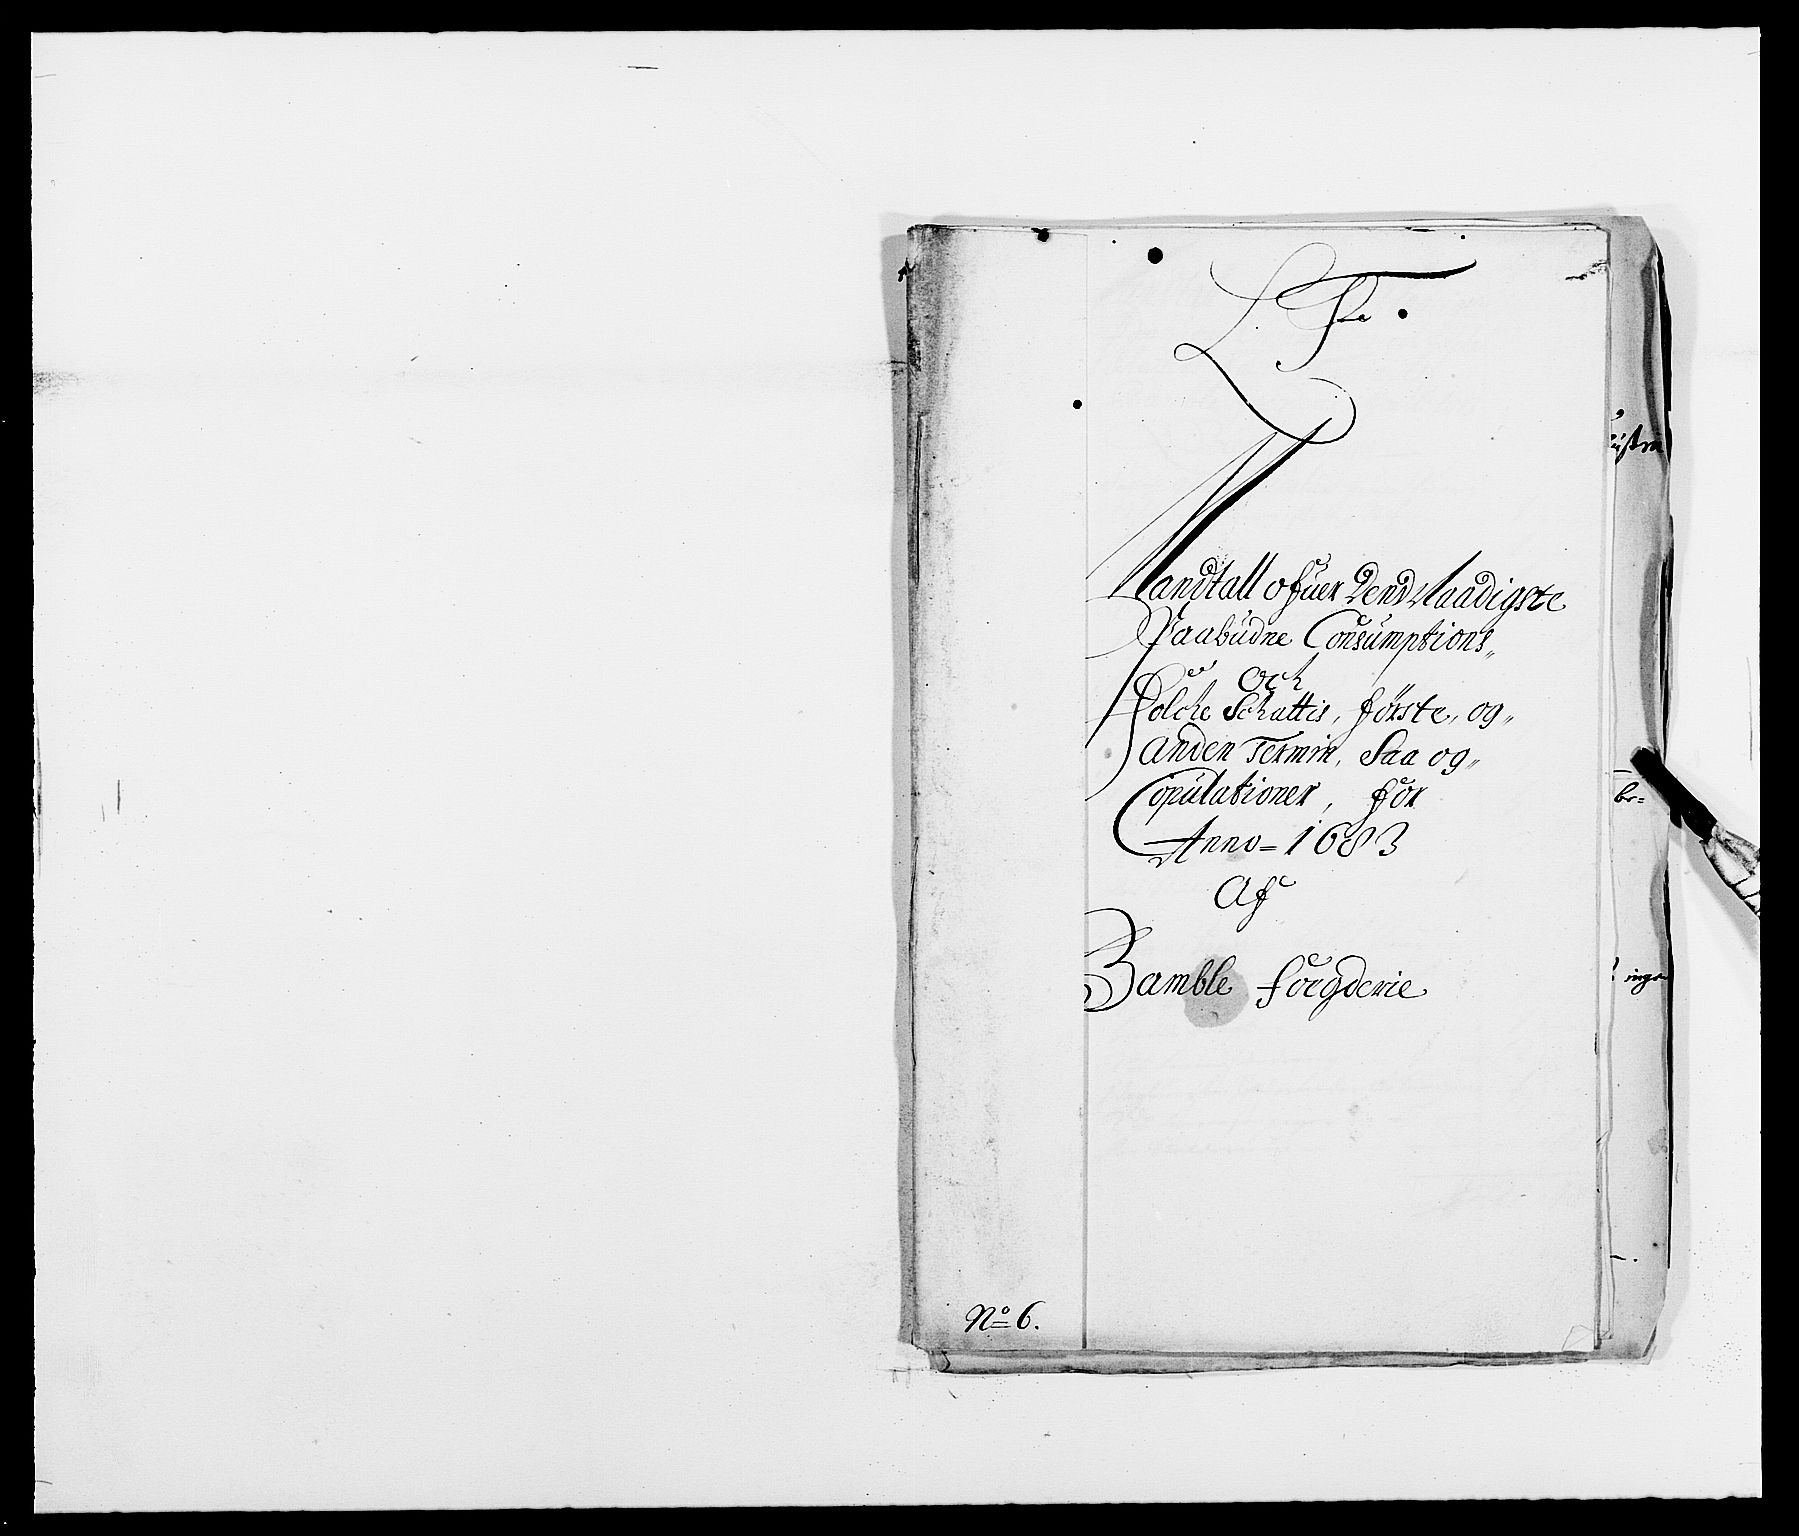 L. F.
Mandtall ofuer Dend Naadigste
Paabudne Consumptions„
och
Folche Schattis, förste, og„
anden Termin, Saa og„
Copulationer, för
Anno = 1683
Af
Bamble foegderie
No 6.
br=